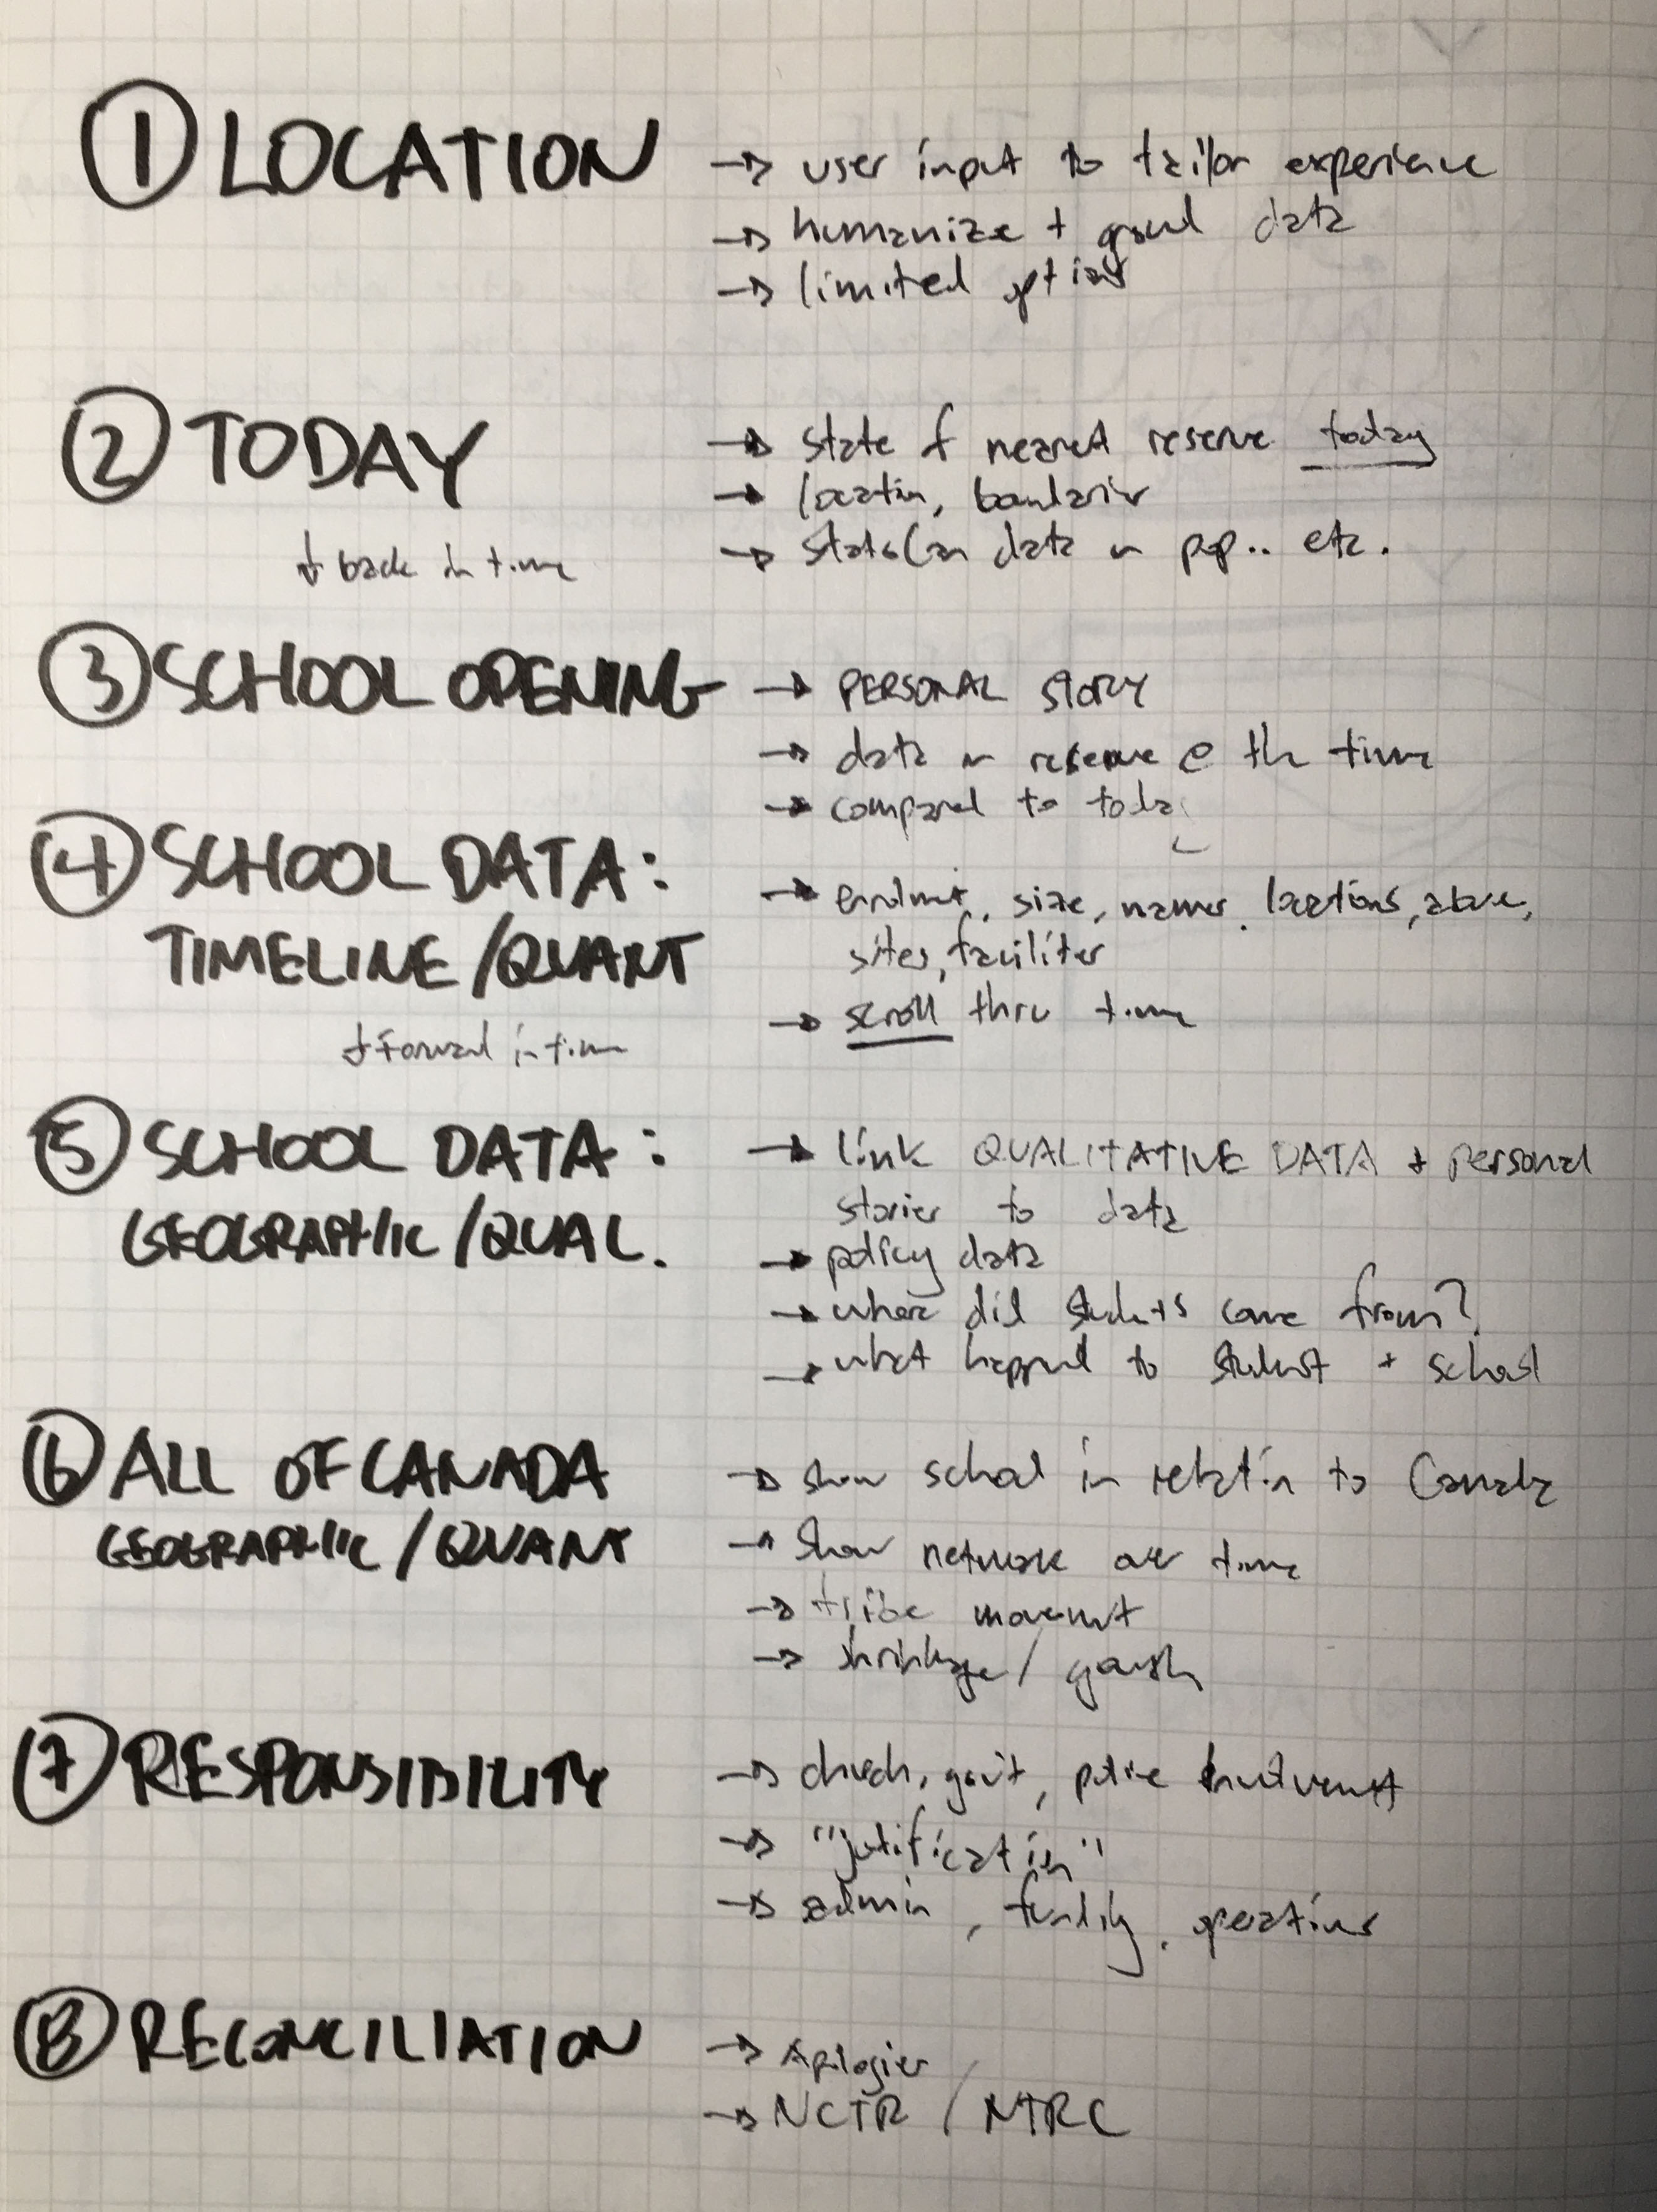 ① LOCATION → user input to tailor experience
→ humanize + ground data
→ limited options
② TODAY → state of nearest reserve today
→ location, boundaries
↓ back in time → StatsCan data on pop.. etc.
③ SCHOOL OPENING → PERSONAL STORY
→ data on reserve @ the time
→ compared to today
④ SCHOOL DATA:
TIMELINE/QUANT → enrolment, size, names, locations, abuse,
sites, facilities
→ scroll thru time
↓ Forward in time
⑤ SCHOOL DATA: → link QUALITATIVE DATA + personal
stories to data
GEOGRAPHIC/QUAL. → policy data
→ where did students come from?
→ what happened to student + school
⑥ ALL OF CANADA → show school in relation to Canada
GEOGRAPHIC/QUANT → show network over time
→ tribe movement
→ shrinkage/growth
⑦ RESPONSIBILITY → church, gov't, police involvement
→ "justification"
→ admin, funding, operations
⑧ RECONCILIATION → Apologies
→ NCTR / NTRC